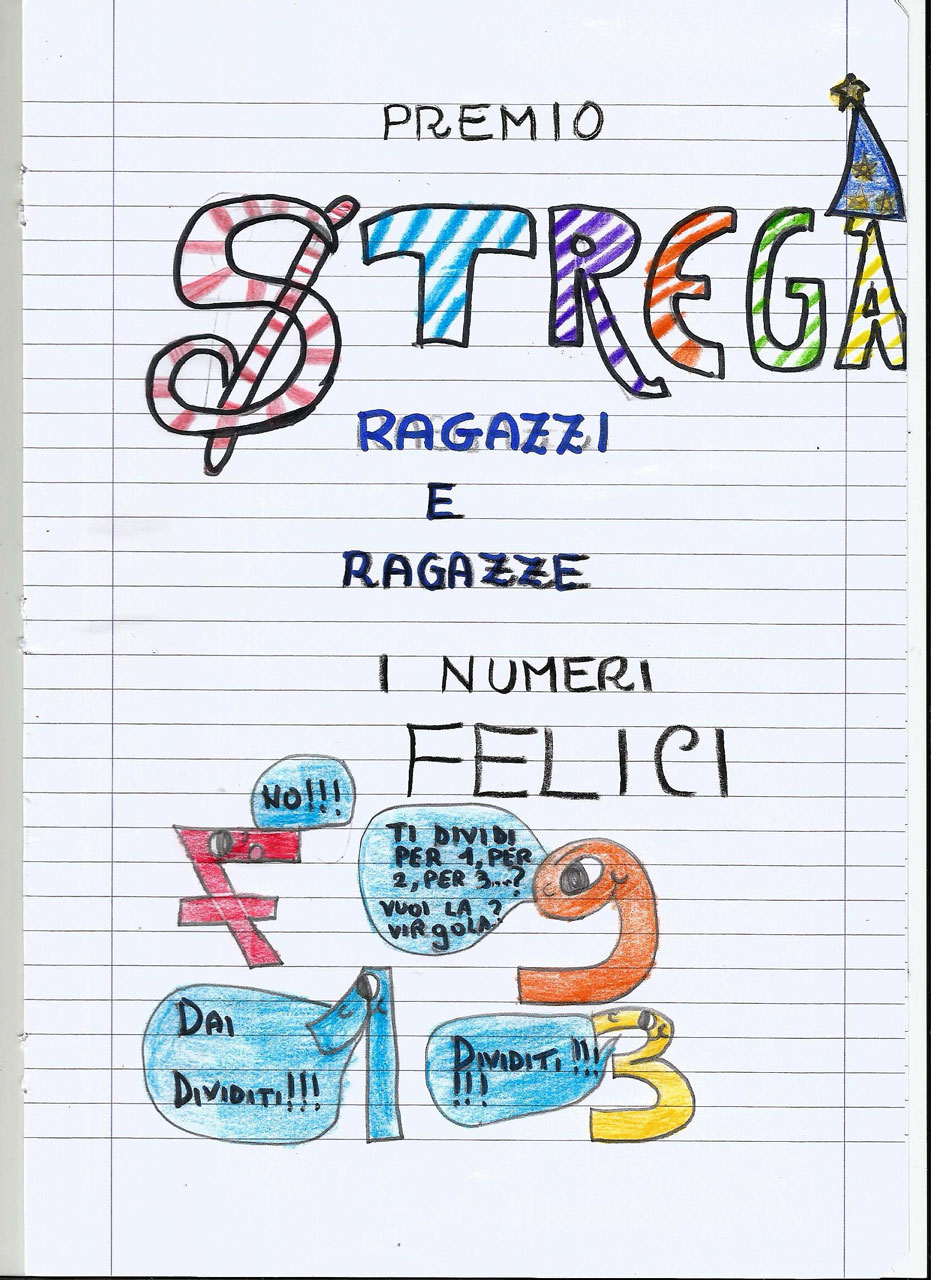 PREMIO
STREGA
RAGAZZI
E
RAGAZZE
I NUMERI
FELICI
NO!!!
7
TI DIVIDI
PER 1, PER
2, PER 3...?
VUOI LA ?
VIRgOLA
9
DAI
DIVIDITI!!!
1
DIVIDITI!!!
!!!
3